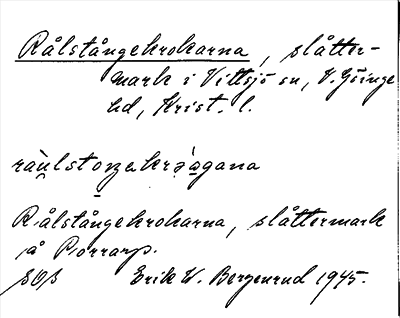 Rålstångekrokarna, slåtter-
mark i Vittsjö sn, V. Göinge
hd, Krist. l.
Rålstångekrokarna, slåttermark
å Porrarp.
Erik W. Bergenrud 1945.